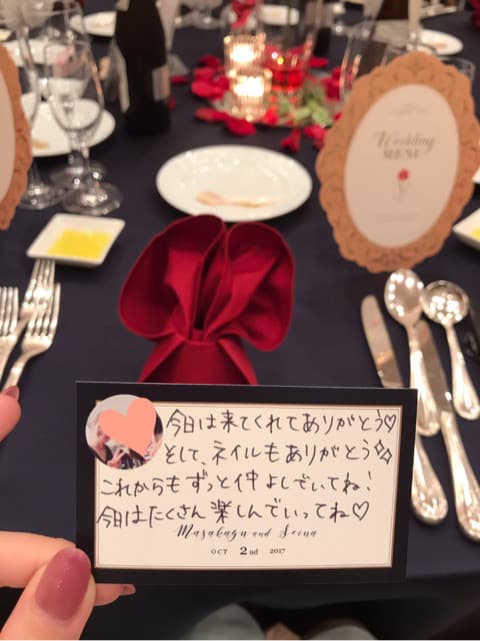 Wedding
MENU
今日は来てくれてありがとう♡
そして、ネイルもありがとう✧
これからもずっと仲よしでいてね!
今日はたくさん楽しんでいってね♡
Masakazu and Seina
OCT 2nd 2017